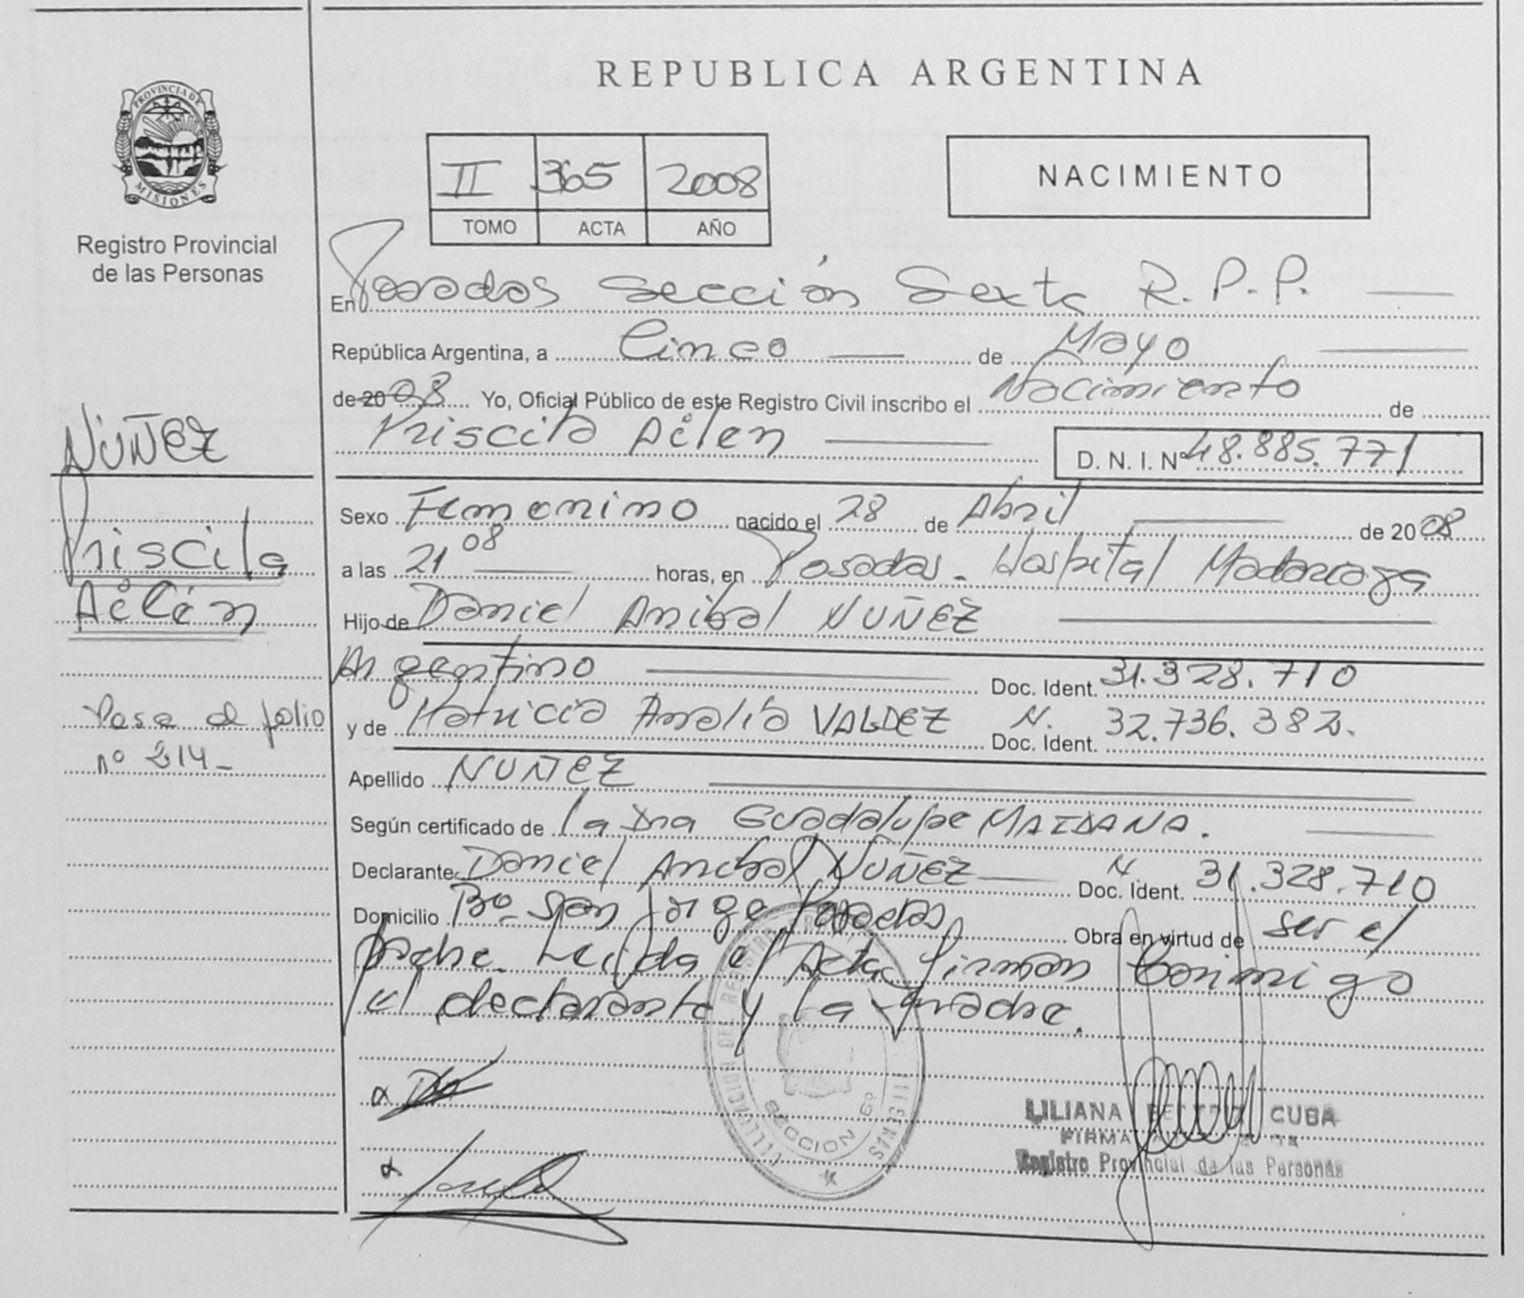 REPUBLICA ARGENTINA
PROVINCIA DE
MISIONES
Registro Provincial
de las Personas
II 365 2008
TOMO ACTA AÑO
NACIMIENTO
En Posadas Sección Sexta R.P.P.
República Argentina, a Cinco de Mayo
de 2008 Yo, Oficial Público de este Registro Civil inscribo el Nacimiento de
Priscila Ailen D. N. I. Nº 48.885.771
NUÑEZ
Priscila
Ailén
Sexo Femenino nacido el 28 de Abril de 2008
a las 21 08 horas, en Posadas. Hospital Madariaga
Hijo de Daniel Anibal NUÑEZ
Argentino Doc. Ident. 31.328.710
y de Patricia Analía VALDEZ N. Doc. Ident. 32.736.382.
Pasa al folio
nº 214-
Apellido NUÑEZ
Según certificado de la Dra Guadalupe MAIDANA.
Declarante Daniel Anibal NUÑEZ N. Doc. Ident. 31.328.710
Domicilio Bº San Jorge Posadas Obra en virtud de ser el
padre. Leída el Acta, firman Conmigo
el declarante y la madre.
SECCION 6º
LILIANA CUBA
FIRMA
Registro Provincial de las Personas